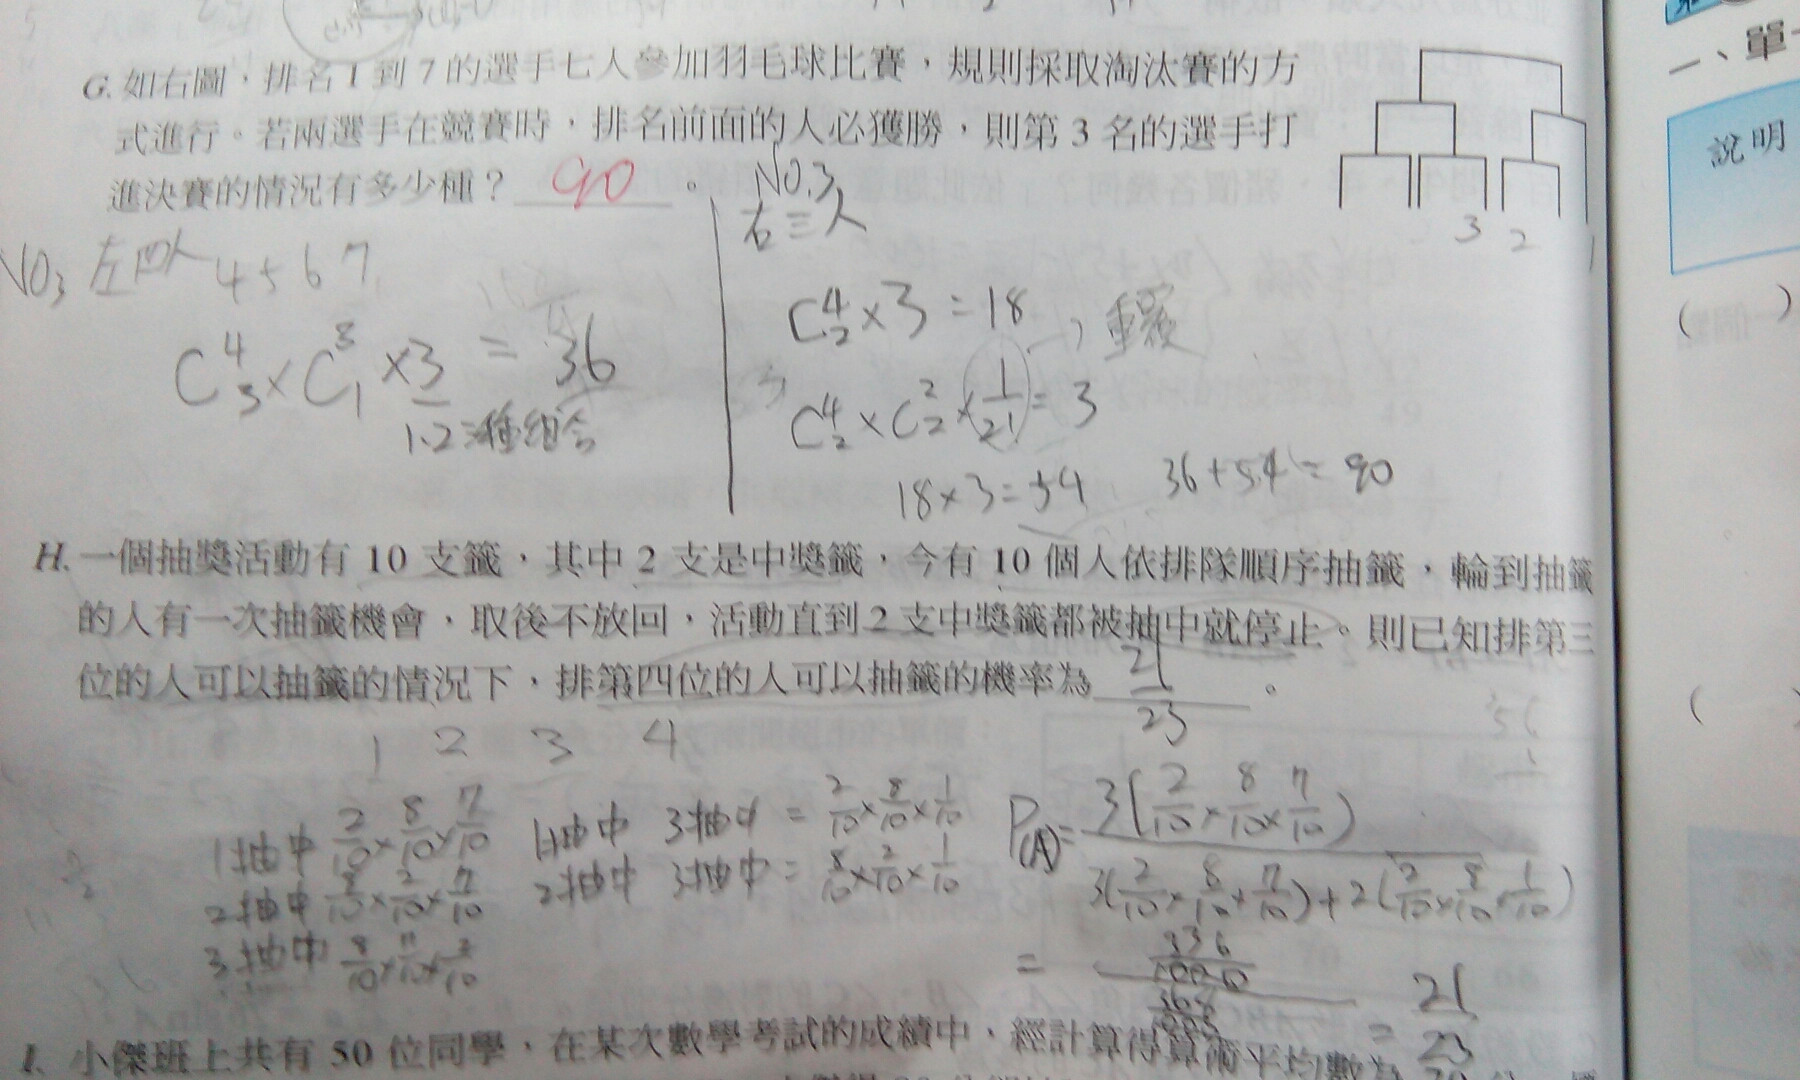 G. 如右圖，排名 1 到 7 的選手七人參加羽毛球比賽，規則採取淘汰賽的方
式進行。若兩選手在競賽時，排名前面的人必獲勝，則第 3 名的選手打
進決賽的情況有多少種？ 90 。
3 2 1
NO3 左四人 4 5 6 7
C⁴₃×C³₁×3 = 36
1.2 三種組合
NO.3
右三人
C⁴₂×3=18，重複
C⁴₂×C²₂×1/2!=3
18×3=54 36+54=90
H. 一個抽獎活動有 10 支籤，其中 2 支是中獎籤，今有 10 個人依排隊順序抽籤，輪到抽籤
的人有一次抽籤機會，取後不放回，活動直到 2 支中獎籤都被抽中就停止。則已知排第三
位的人可以抽籤的情況下，排第四位的人可以抽籤的機率為 21/23 。
1 2 3 4
1抽中 2/10×8/10×7/10
2抽中 8/10×2/10×7/10
3抽中
1抽中 3抽中 = 2/10×8/10×1/10
2抽中 3抽中 = 8/10×2/10×1/10
P(A)= 3(2/10×8/10×7/10) / 3(2/10×8/10×7/10)+2(2/10×8/10×1/10)
= 21/23
I. 小傑班上共有 50 位同學，在某次數學考試的成績中，經計算得算術平均數為
一、單
說明
( )
(